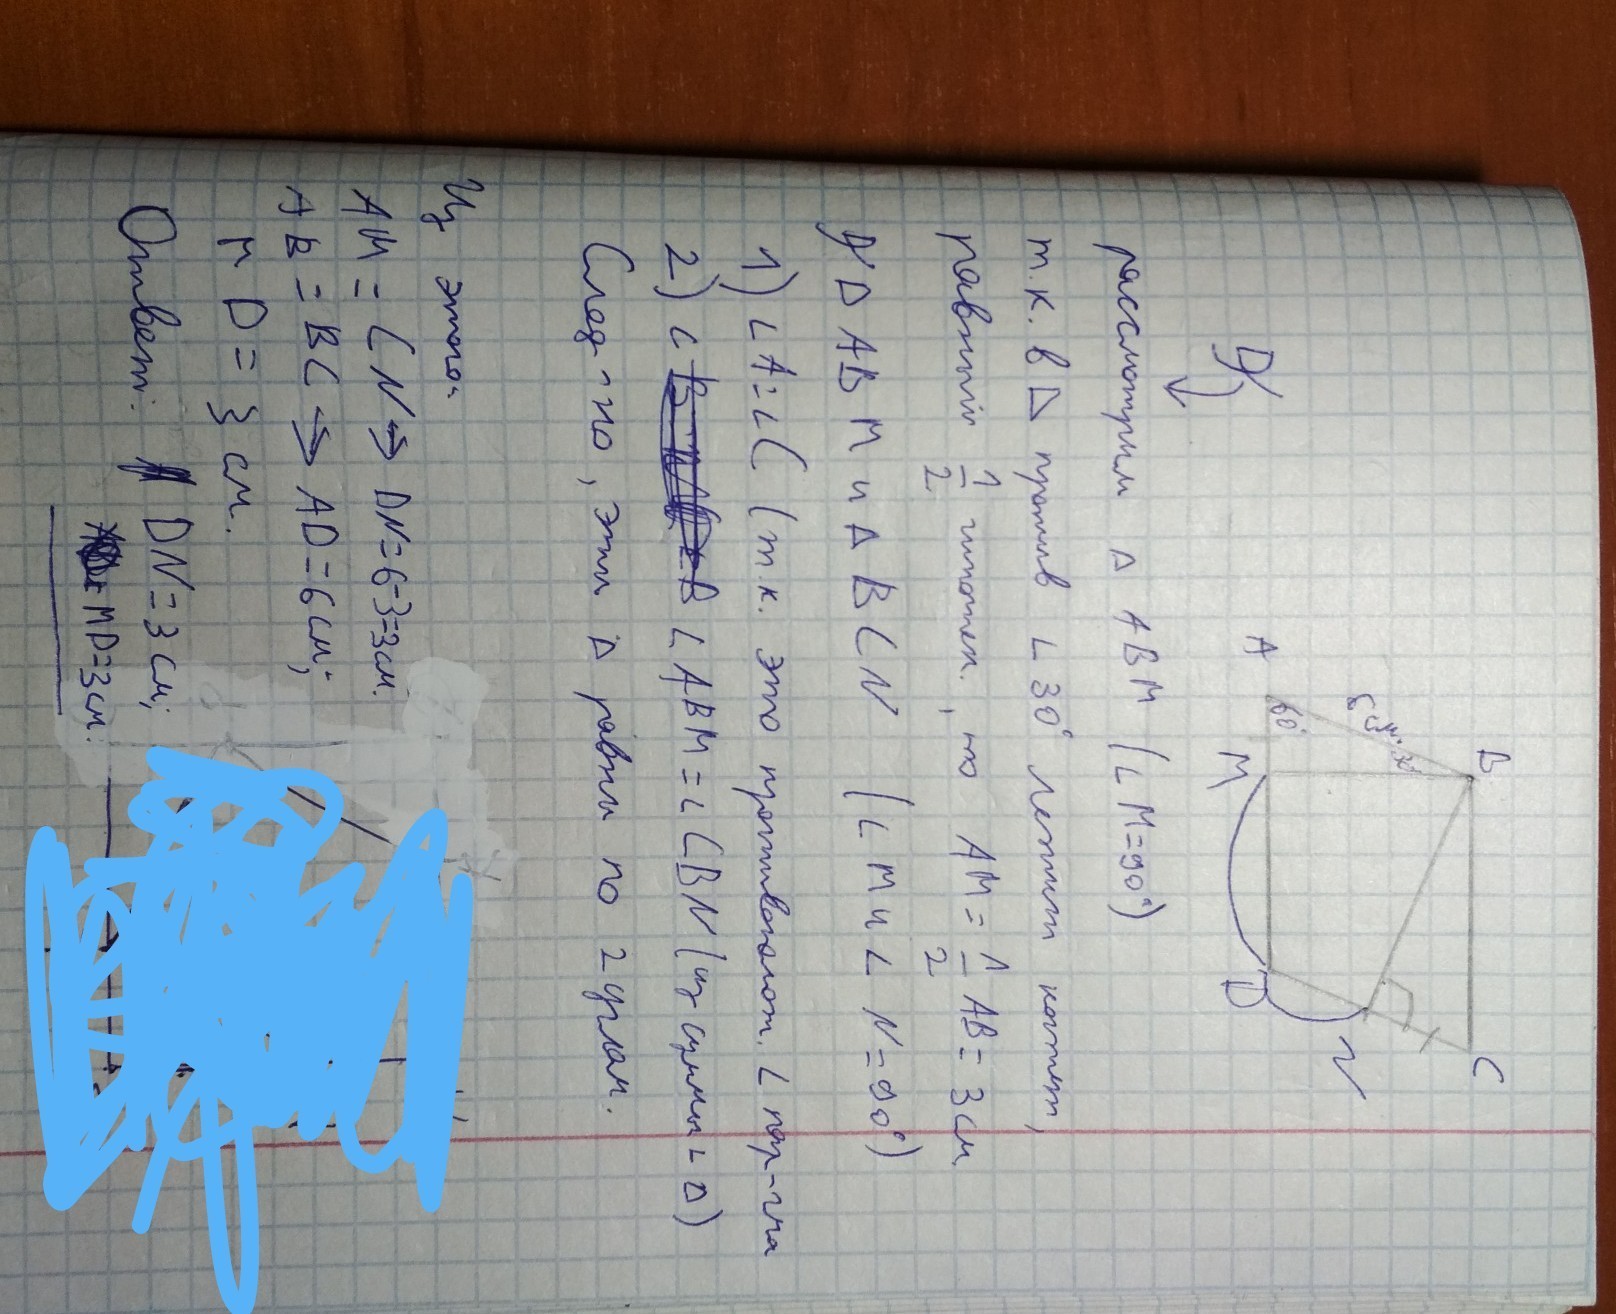 Д/
B
C
6 см.
30°
60°
A
M
D
N
рассмотрим Δ ABM (∠M=90°)
т.к. в Δ против ∠30° лежит катет,
равный 1/2 гипотен., то AM = 1/2 AB = 3 см
Δ ABM и Δ BCN (∠M и ∠N=90°)
1) ∠A=∠C (т.к. это противополож. ∠ пар-гма
2) ∠ABM=∠CBN (из суммы ∠Δ)
След-но, эти Δ равны по 2 углам.
Из этого:
AM = CN → DN=6-3=3см.
AB = BC → AD=6см;
MD = 3 см.
Ответ: DN=3см;
MD=3см.